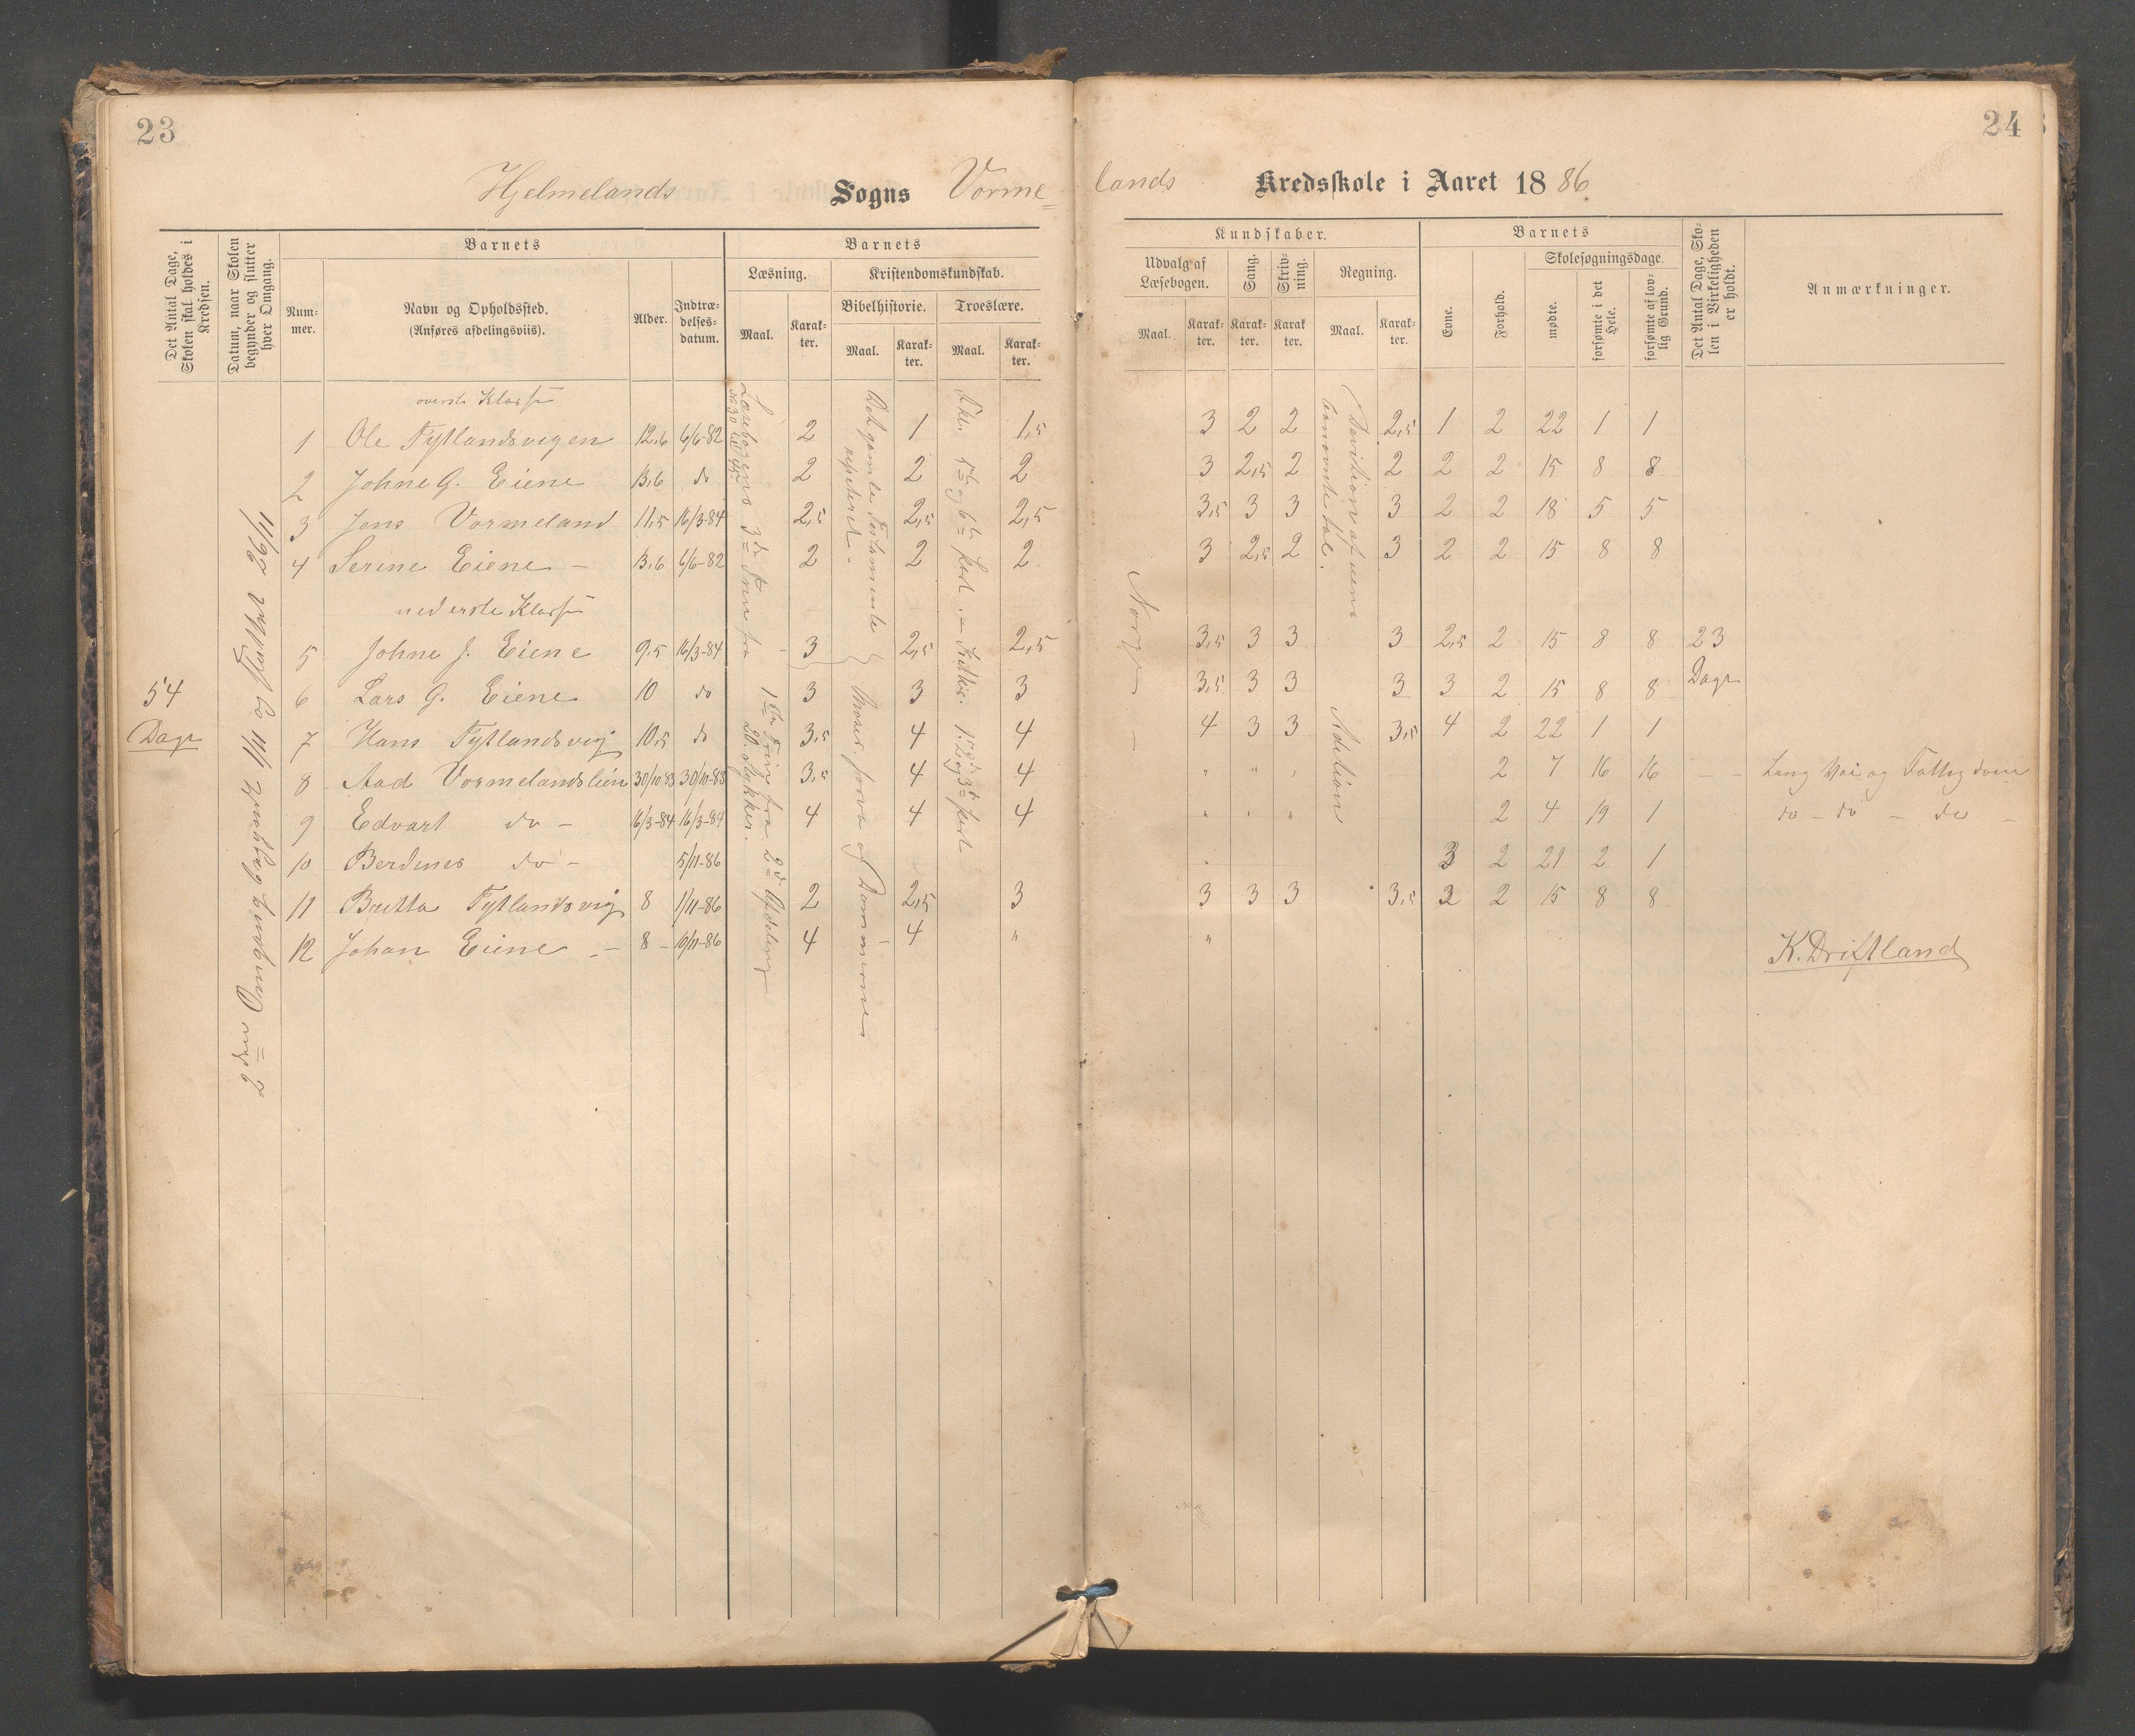 23
24
Hjelmelands Sogns Vorme=
lands Kredsskole i Aaret 1886
Det Antal Dage, Skolen skal holdes i Kredsen.
Datum, naar Skolen begynder og slutter hver Omgang.
Barnets
Nummer.
Navn og Opholdssted.
(Anføres afdelingsviis).
Alder.
Indtrædelsesdatum.
Barnets
Læsning.
Maal.
Karakter.
Kristendomskundskab.
Bibelhistorie.
Maal.
Karakter.
Troeslære.
Maal.
Karakter.
Kundskaber.
Udvalg af Læsebogen.
Maal.
Karakter.
Sang.
Karakter.
Skrivning.
Karakter.
Regning.
Maal.
Karakter.
Barnets
Evne.
Forhold.
Skolesøgningsdage.
mødte.
forsømte i det Hele.
forsømte af lovlig Grund.
Det Antal Dage, Skolen i Virkeligheden er holdt.
Anmærkninger.
54
Dage
2den Omgang begyndt 1/11 og sluttet 26/11
Læsebogens 3die Trin fra
No 30 til 45.
1ste Trin fra 2d Afdeling
20. Stykker.
Det gamle Testamente
repeteret.
Moses, Josva og Dommerne
5te og 6te Part
Norge
Division af uens
benævnte Tal.
Adition
23
Dage
overste Klasse
1 Ole Tytlandsvigen 12,6 6/6-82 2 1 1,5 3 2 2 2,5 1 2 22 1 1
2 Johne G. Eiene 13,6 do 2 2 2 3 2,5 2 2 2 2 15 8 8
3 Jens Vormeland 11,5 16/3-84 2,5 2,5 2,5 3,5 3 3 3 2 2 18 5 5
4 Serine Eiene – 13,6 6/6-82 2 2 2 3 2,5 2 3 2 2 15 8 8
nederste Klasse
5 Johne J. Eiene 9,5 16/3-84 3 2,5 2,5 3,5 3 3 3 2,5 2 15 8 8
6 Lars G. Eiene 10 do 3 3 3 3,5 3 3 3 3 2 15 8 8
7 Hans Tytlandsvig 10,5 do 3,5 4 4 4 3 3 3,5 4 2 22 1 1
8 Aad Vormelandslien 30/10-83 30/10-83 3,5 4 4 " " " 2 7 16 16 – – Lang Vei og Fattigdom
9 Edvart do – 16/3-84 16/3-84 4 4 4 " " " 2 4 19 1 do – do – do –
10 Berdines do – 5/11-86 3 2 21 2 1
11 Britta Tytlandsvig 8 1/11-86 2 2,5 3 3 3 3 3,5 2 2 15 8 8
12 Johan Eiene – 8 – 19/11-86 4 4 " "
K. Driftland